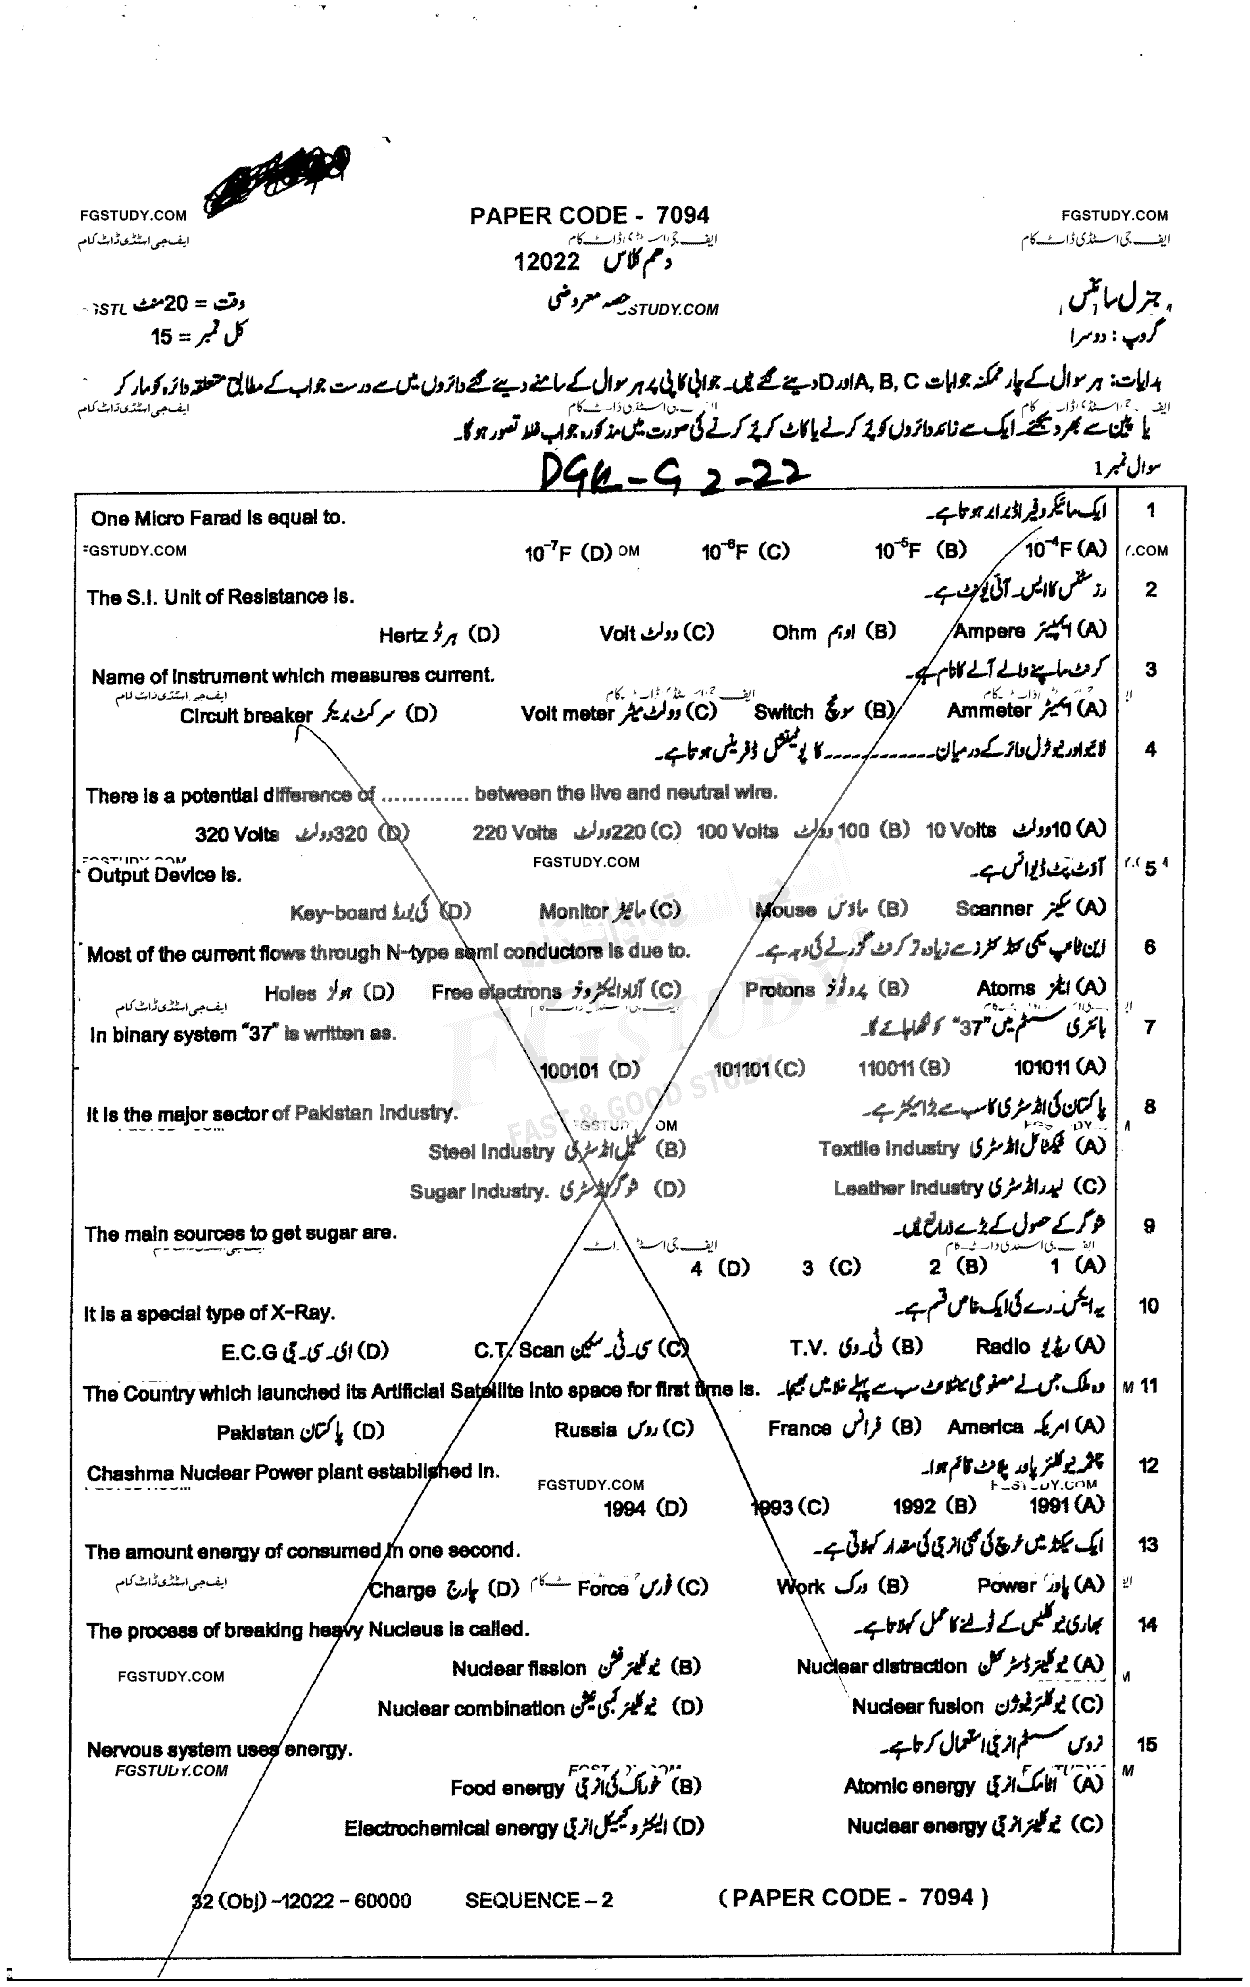 FGSTUDY.COM PAPER CODE - 7094 FGSTUDY.COM
ایف جی اسٹڈی ڈاٹ کام
12022 دہم کلاس
وقت = 20 منٹ حصہ معروضی STUDY.COM جنرل سائنس
کل نمبر = 15 گروپ : دوسرا
ہدایات: ہر سوال کے چار ممکنہ جوابات A, B, C اور D دیئے گئے ہیں۔ جوابی کاپی پر ہر سوال کے سامنے دیئے گئے دائروں میں سے درست جواب کے مطابق متعلقہ دائرہ کو مارکر
یا پین سے بھر دیجئے۔ ایک سے زائد دائروں کو پُر کرنے یا کاٹ کر پُر کرنے کی صورت میں مذکورہ جواب غلط تصور ہو گا۔
سوال نمبر 1
DGK-G2-22
One Micro Farad is equal to. ایک مائیکرو فیراڈ برابر ہوتا ہے۔ 1
FGSTUDY.COM 10⁻⁷F (D) OM 10⁻⁶F (C) 10⁻⁵F (B) 10⁻⁴F (A) Y.COM
The S.I. Unit of Resistance is. رزسٹنس کا ایس۔ آئی یونٹ ہے۔ 2
Hertz ہرٹز (D) Volt وولٹ (C) Ohm اوہم (B) Ampere ایمپیئر (A)
Name of Instrument which measures current. کرنٹ ماپنے والے آلے کا نام ہے۔ 3
Circuit breaker سرکٹ بریکر (D) Volt meter وولٹ میٹر (C) Switch سوئچ (B) Ammeter ایمیٹر (A)
لائیو اور نیوٹرل وائر کے درمیان ------------ کا پوٹینشل ڈفرینس ہوتا ہے۔ 4
There is a potential difference of ............. between the live and neutral wire.
320 Volts وولٹ 320 (D) 220 Volts وولٹ 220 (C) 100 Volts وولٹ 100 (B) 10 Volts وولٹ 10 (A)
FGSTUDY.COM
Output Device is. آؤٹ پٹ ڈیوائس ہے۔ 5
Key-board کی بورڈ (D) Monitor مانیٹر (C) Mouse ماؤس (B) Scanner سکینر (A)
Most of the current flows through N-type semi conductors is due to. این ٹائپ سیمی کنڈکٹرز سے زیادہ تر کرنٹ گزرنے کی وجہ ہے۔ 6
Holes ہولز (D) Free electrons آزاد الیکٹرونز (C) Protons پروٹونز (B) Atoms ایٹمز (A)
In binary system "37" is written as. بائنری سسٹم میں "37" کو لکھا جائے گا۔ 7
100101 (D) 101101 (C) 110011 (B) 101011 (A)
FGSTUDY
FAST & GOOD STUDY
It is the major sector of Pakistan Industry. پاکستان کی انڈسٹری کا سب سے بڑا سیکٹر ہے۔ 8
Steel Industry سٹیل انڈسٹری (B) Textile Industry ٹیکسٹائل انڈسٹری (A)
Sugar Industry. شوگر انڈسٹری (D) Leather Industry لیدر انڈسٹری (C)
The main sources to get sugar are. شوگر کے حصول کے بڑے ذرائع ہیں۔ 9
4 (D) 3 (C) 2 (B) 1 (A)
It is a special type of X-Ray. یہ ایکس۔ رے کی ایک خاص قسم ہے۔ 10
E.C.G ای۔ سی۔ جی (D) C.T. Scan سی۔ ٹی۔ سکین (C) T.V. ٹی۔ وی (B) Radio ریڈیو (A)
The Country which launched its Artificial Satellite into space for first time is. وہ ملک جس نے مصنوعی سیٹلائٹ سب سے پہلے خلا میں بھیجا۔ M 11
Pakistan پاکستان (D) Russia روس (C) France فرانس (B) America امریکہ (A)
Chashma Nuclear Power plant established in. چشمہ نیوکلیئر پاور پلانٹ قائم ہوا۔ 12
FGSTUDY.COM
1994 (D) 1993 (C) 1992 (B) 1991 (A)
The amount energy of consumed in one second. ایک سیکنڈ میں خرچ کی گئی انرجی کی مقدار کہلاتی ہے۔ 13
ایف جی اسٹڈی ڈاٹ کام Charge چارج (D) Force فورس (C) Work ورک (B) Power پاور (A)
The process of breaking heavy Nucleus is called. بھاری نیوکلیس کے ٹوٹنے کا عمل کہلاتا ہے۔ 14
FGSTUDY.COM Nuclear fission نیوکلیئر فشن (B) Nuclear distraction نیوکلیئر ڈسٹرکشن (A)
Nuclear combination نیوکلیئر کمبی نیشن (D) Nuclear fusion نیوکلیئر فیوژن (C)
Nervous system uses energy. نروس سسٹم انرجی استعمال کرتا ہے۔ 15
FGSTUDY.COM
Food energy خوراک کی انرجی (B) Atomic energy اٹامک انرجی (A)
Electrochemical energy الیکٹرو کیمیکل انرجی (D) Nuclear energy نیوکلیئر انرجی (C)
32 (Obj) -12022 - 60000 SEQUENCE - 2 (PAPER CODE - 7094)